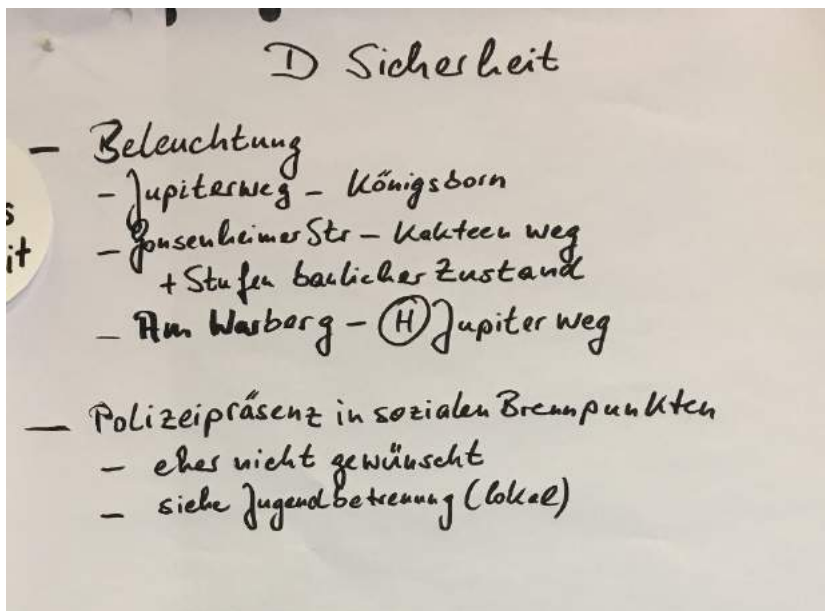 D Sicherheit
– Beleuchtung
– Jupiterweg – Königsborn
– Gonsenheimer Str – Kakteenweg
+ Stufen baulicher Zustand
– Am Warberg – (H) Jupiterweg
– Polizeipräsenz in sozialen Brennpunkten
– eher nicht gewünscht
– siehe Jugendbetreuung (lokal)
s
it